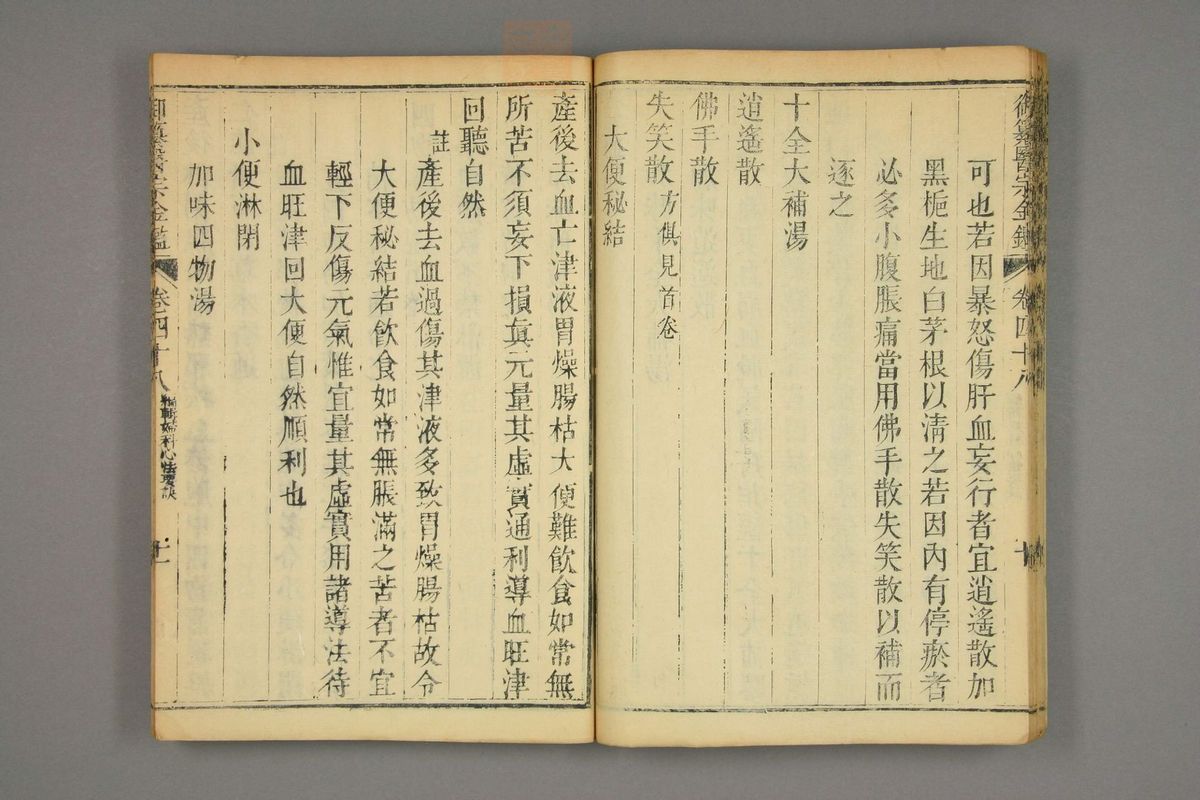 御纂醫宗金鑑 卷四十八 十
可也若因暴怒傷肝血妄行者宜逍遙散加
黑梔生地白茅根以清之若因內有停瘀者
必多小腹脹痛當用佛手散失笑散以補而
逐之
十全大補湯
逍遙散
佛手散
失笑散 方俱見首卷
大便秘結
產後去血亡津液胃燥腸枯大便難飲食如常無
所苦不須妄下損眞元量其虛實通利導血旺津
回聽自然
註產後去血過傷其津液多致胃燥腸枯故令
大便秘結若飲食如常無脹滿之苦者不宜
輕下反傷元氣惟宜量其虛實用諸導法待
血旺津回大便自然順利也
小便淋閉
加味四物湯
御纂醫宗金鑑 卷四十八 編輯婦科心法要訣 十一